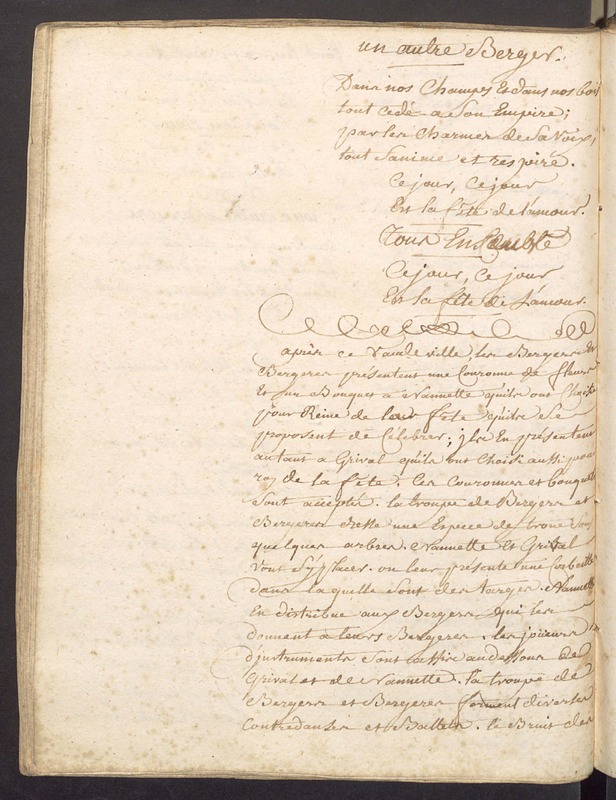 un autre Berger.
Dans nos Champs Et dans nos bois
tout cedé a Son Empire;
par les Charmes de Sa Voix,
tout Sanime et respire.
Ce jour, Ce jour
Est la fête de L'amour.
Tous Ensemble
Ce jour, Ce jour
Est la fête de L'amour.
après ce Vaudeville, les Bergers et
Bergeres présentent une Couronne de fleurs
Et un Bouquet a Nannette qu'ils ont Choisie
pour Reine de leur fête qu'ils Se
proposent de Célébrer; ils En présentent
autant a Grival qu'ils ont Choisi aussi pour
roy de la fête; les Couronnes et bouquets
Sont acceptés. la troupe de Bergers et
Bergeres dresse une Espece de trone Sous
quelques arbres. Nannette Et Grival
Vont S'y placer. on leur présente une Corbeille
dans laquelle Sont des targes. Nannette
En distribue aux Bergers qui les
donnent à leurs Bergeres. les joueurs
d'instruments Sont assis au dessous de
Grival et de Nannette. la troupe de
Bergers et Bergeres forment diverses
Contredanses et Ballets. le Bruit des